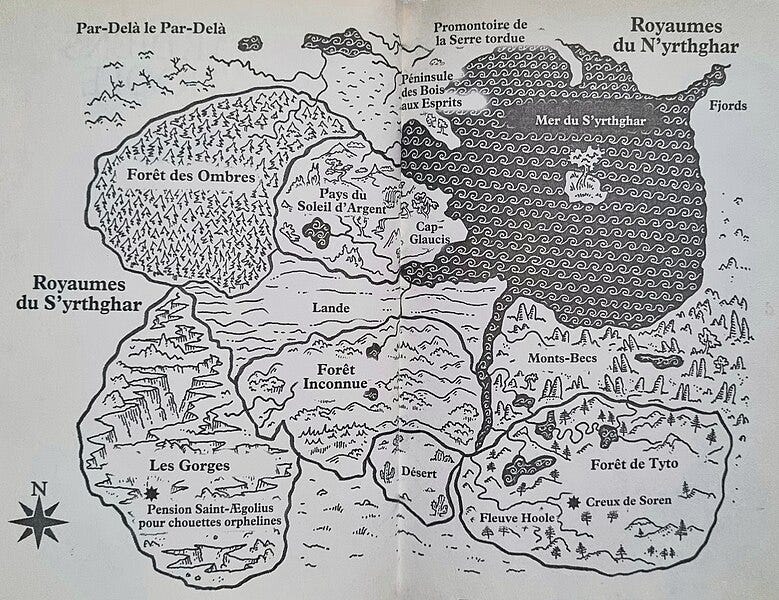 Par-Delà le Par-Delà
Promontoire de
la Serre tordue
Royaumes
du N'yrthghar
Péninsule
des Bois
aux Esprits
Fjords
Mer du S'yrthghar
Forêt des Ombres
Pays du
Soleil d'Argent
Cap-
Glaucis
Royaumes
du S'yrthghar
Lande
Monts-Becs
Forêt
Inconnue
Les Gorges
Désert
Forêt de Tyto
N
Pension Saint-Ægolius
pour chouettes orphelines
Creux de Soren
Fleuve Hoole